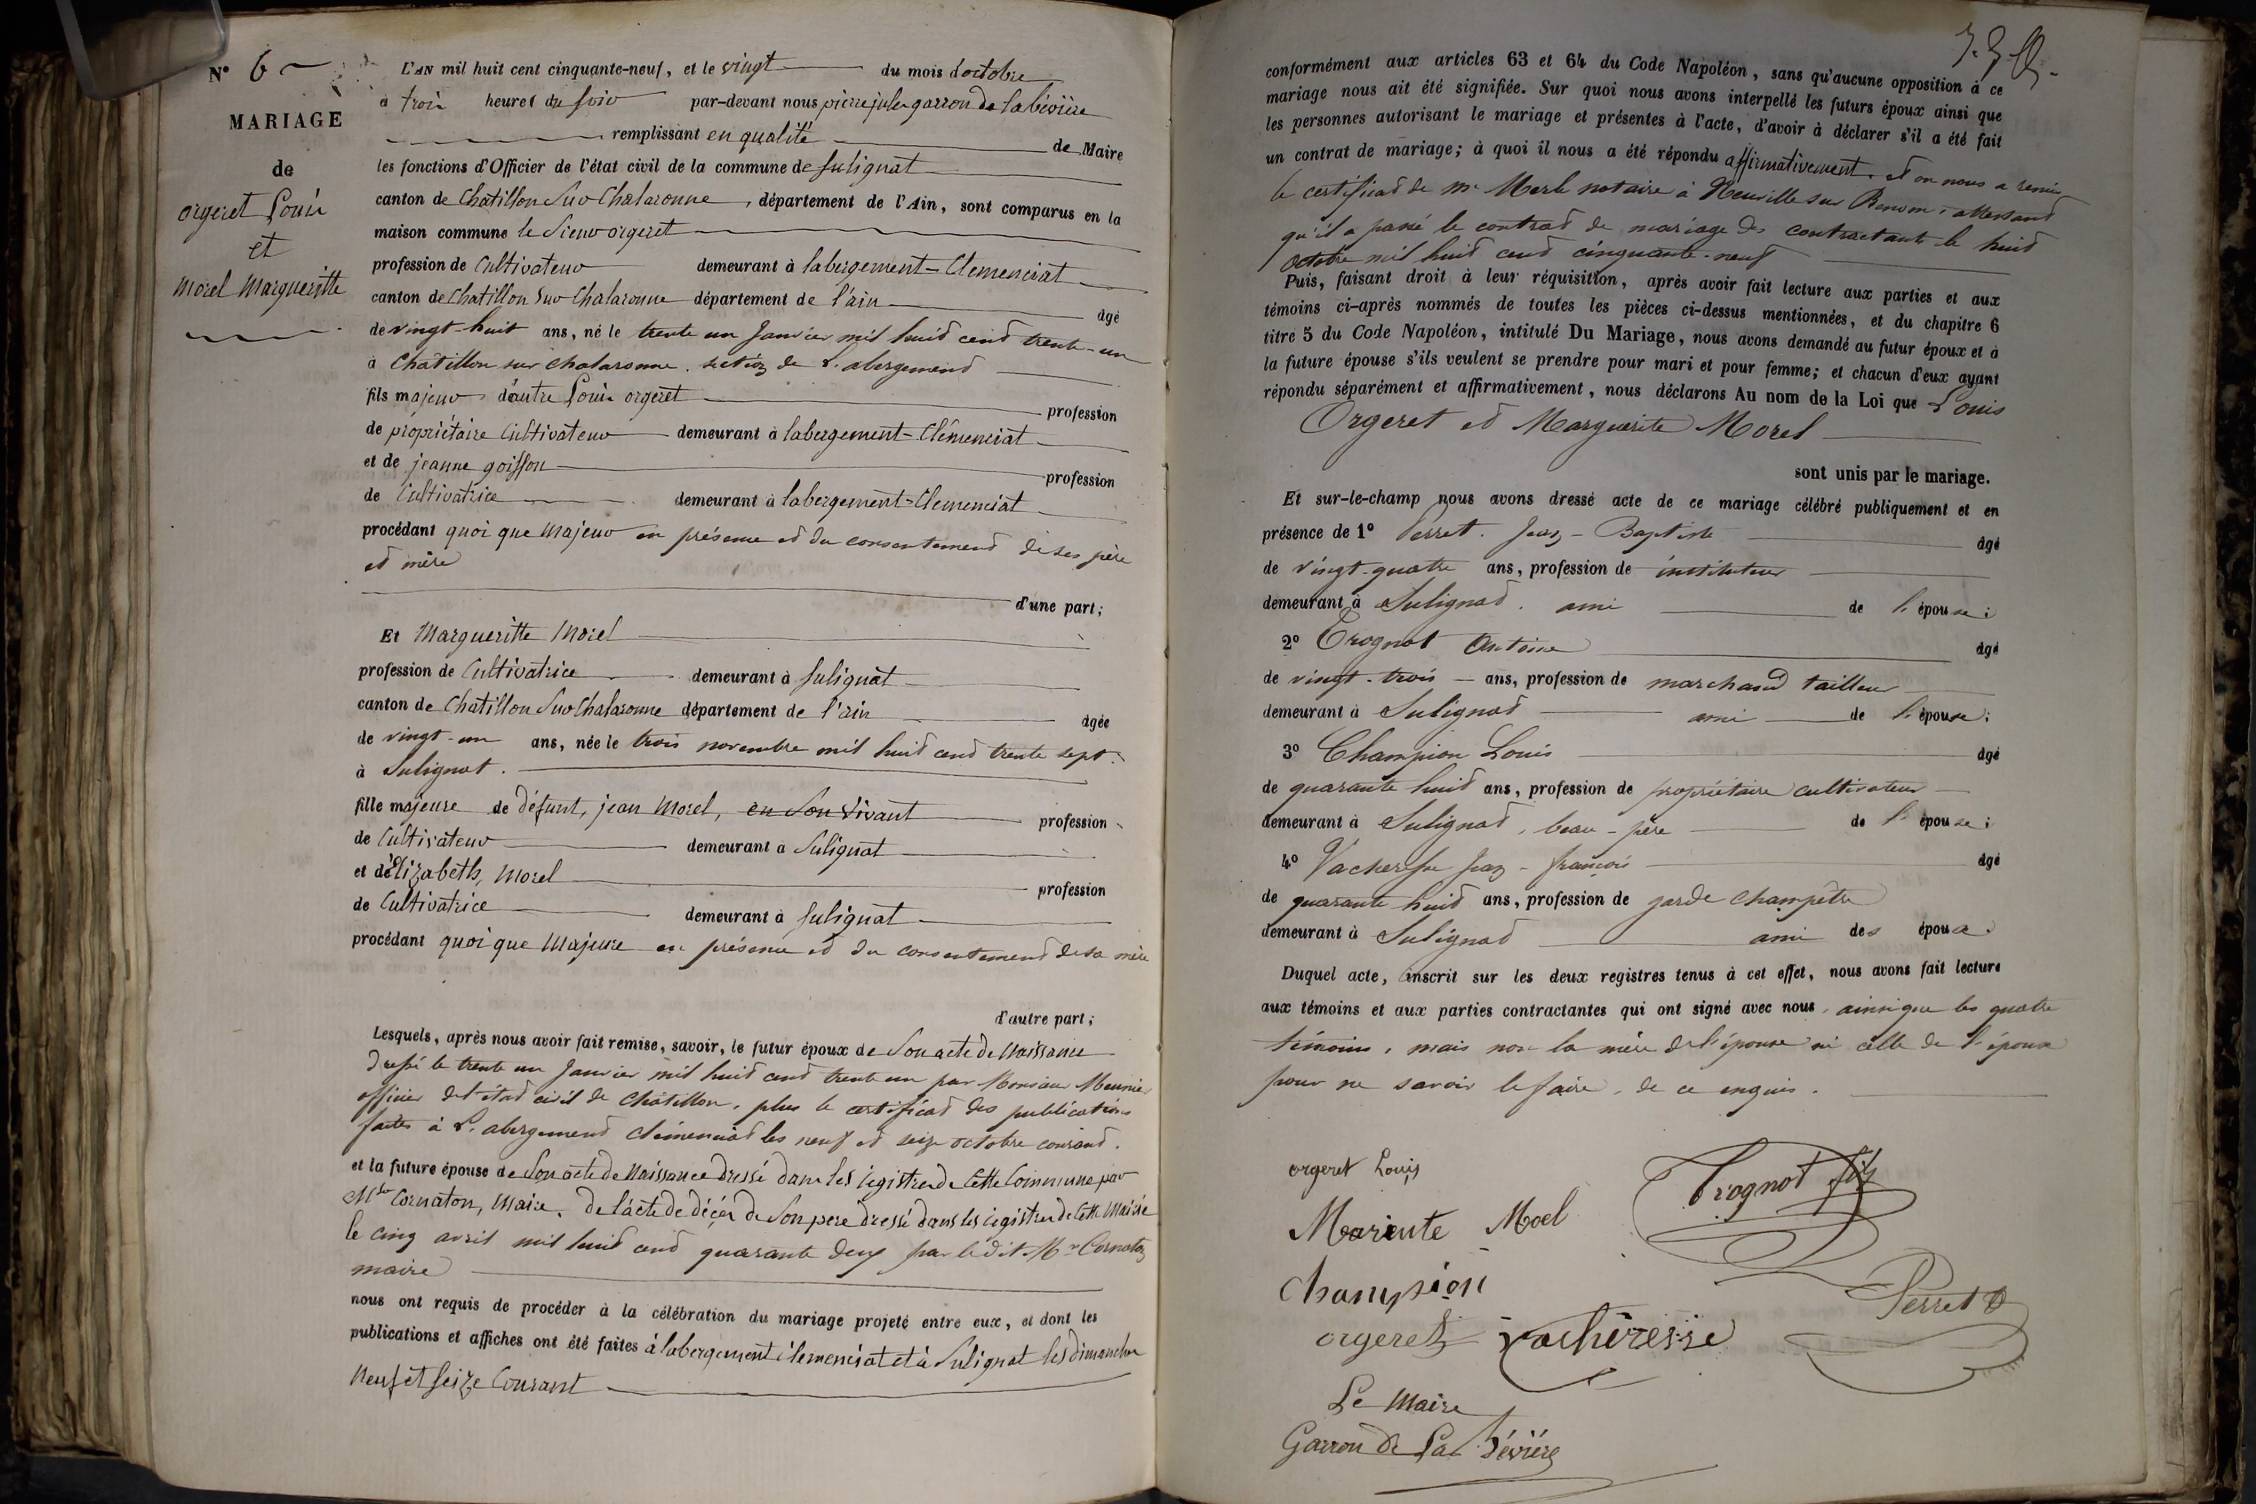 N° 6
MARIAGE
de
orgeret Louis
et
Morel Margueritte
L'AN mil huit cent cinquante-neuf, et le vingt du mois d'octobre
à trois heures du soir par-devant nous pierre jules garron de la bévière
remplissant en qualité de Maire
les fonctions d'Officier de l'état civil de la commune de Sulignat
canton de Chatillon Sur Chalaronne, département de l'Ain, sont comparus en la
maison commune le Sieur orgeret
profession de Cultivateur demeurant à labergement-Clemenciat
canton de Chatillon Sur Chalaronne département de l'ain âgé
de vingt-huit ans, né le trente un Janvier mil huit cent trente-un
à Châtillon sur chalaronne. section de L'abergement
fils majeur d'autre Louis orgeret profession
de propriétaire Cultivateur demeurant à labergement-Clémenciat
et de jeanne goiffon profession
de Cultivatrice demeurant à labergement-Clemenciat
procédant quoi que Majeur en présence et du consentement de ses père
et mère
d'une part;
Et Margueritte Morel
profession de Cultivatrice demeurant à Sulignat
canton de Chatillon Sur Chalaronne département de l'ain âgée
de vingt-un ans, née le trois novembre mil huit cent trente sept.
à Sulignat.
fille majeure de défunt, jean Morel, en Son Vivant profession
de Cultivateur demeurant à Sulignat
et d'Elizabeth, Morel profession
de Cultivatrice demeurant à Sulignat
procédant quoi que Majeure en présence et du consentement de sa mère
d'autre part;
Lesquels, après nous avoir fait remise, savoir, le futur époux de Son acte de Naissance
dressé le trente un Janvier mil huit cent trente un par Monsieur Meunier
officier de l'état civil de Châtillon. plus le certificat des publications
faites à L'abergement clémenciat les neuf et seize octobre courant.
et la future épouse de Son acte de Naissance dressé dans les registres de Cette Commune par
Mr Cornaton, Maire. De l'acte de décès de Son père dressé dans les registres de Cette Mairie
le cinq avril mil huit cent quarante deux par le dit Mr Cornaton
maire
nous ont requis de procéder à la célébration du mariage projeté entre eux, et dont les
publications et affiches ont été faites à labergement clemenciat et à Sulignat les dimanches
Neuf et Seize Courant
conformément aux articles 63 et 64 du Code Napoléon, sans qu'aucune opposition à ce
mariage nous ait été signifiée. Sur quoi nous avons interpellé les futurs époux ainsi que
les personnes autorisant le mariage et présentes à l'acte, d'avoir à déclarer s'il a été fait
un contrat de mariage; à quoi il nous a été répondu affirmativement. et on nous a remis
le certificat de Mr Merle notaire à Neuville sur Renom, attestant
qu'il a passé le contrat de mariage des contractants le huit
octobre mil huit cent cinquante-neuf
Puis, faisant droit à leur réquisition, après avoir fait lecture aux parties et aux
témoins ci-après nommés de toutes les pièces ci-dessus mentionnées, et du chapitre 6
titre 5 du Code Napoléon, intitulé Du Mariage, nous avons demandé au futur époux et à
la future épouse s'ils veulent se prendre pour mari et pour femme; et chacun d'eux ayant
répondu séparément et affirmativement, nous déclarons Au nom de la Loi que Louis
Orgeret et Marguerite Morel
sont unis par le mariage.
Et sur-le-champ nous avons dressé acte de ce mariage célébré publiquement et en
présence de 1° Perret. Jean-Baptiste âgé
de vingt-quatre ans, profession de instituteur
demeurant à Sulignat. ami de l'épouse;
2° Trognot Antoine âgé
de vingt-trois ans, profession de marchand tailleur
demeurant à Sulignat ami de l'épouse;
3° Champion Louis âgé
de quarante huit ans, profession de propriétaire cultivateur
demeurant à Sulignat, beau-père de l'épouse;
4° Vacheresse Jean-françois âgé
de quarante huit ans, profession de garde champêtre
demeurant à Sulignat ami des époux.
Duquel acte, inscrit sur les deux registres tenus à cet effet, nous avons fait lecture
aux témoins et aux parties contractantes qui ont signé avec nous, ainsi que les quatre
témoins, mais non la mère de l'épouse ni celle de l'époux
pour ne savoir le faire, de ce enquis.
orgeret Louis
Trognot fils
Mariente Moel
Champion
Perret
orgeret
Vacheresse
Le Maire
Garron de La Bévière